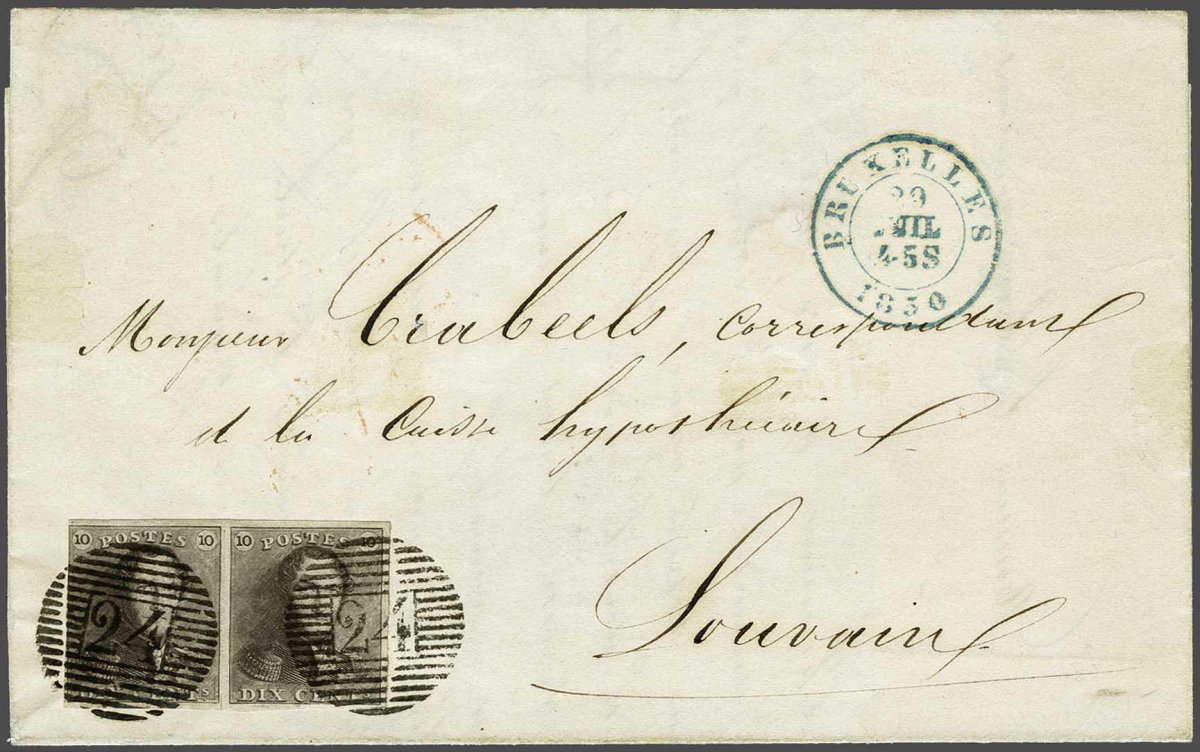 BRUXELLES
29
JUIL
4-5S
1850
Monsieur Crabeels, correspondant
d la Caisse hypothécaire
Louvain
10 POSTES 10
24
DIX CENTS
10 POSTES 10
24
DIX CENTS